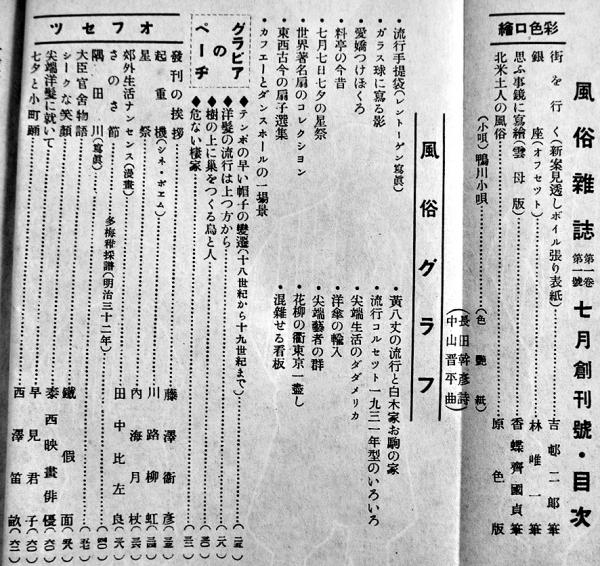 風俗雜誌 第一卷 第一號 七月創刊號・目次
彩色口繪
街を行く(新案見透しボイル張り表紙)……吉邨二郎筆
銀座(オフセツト)……林唯一筆
思ふ事鏡に寫繪(雲母版)……香蝶齊國貞筆
北米土人の風俗……原色版
(小唄)鴨川小唄……(色艷紙)
長田幹彥詩
中山晋平曲
風俗グラフ
・流行手提袋(レントーゲン寫眞)
・ガラス球に寫る影
・愛嬌つけぼくろ
・料亭の今昔
・七月七日七夕の星祭
・世界著名扇のコレクション
・東西古今の扇子選集
・カフエーとダンスホールの一場景
・黃八丈の流行と白木家お駒の家
・流行コルセツト一九三一年型のいろいろ
・尖端生活のダダメリカ
・洋傘の輸入
・尖端藝者の群
・花柳の衢東京一盡し
・混雜せる看板
グラビアのページ
◆テンポの早い帽子の變遷(十八世紀から十九世紀まで)……(二五)
◆洋髮の流行は上つ方から……(二八)
◆樹の上に巢をつくる鳥と人……(三〇)
◆危ない棲家……(三二)
オフセツト
發刊の挨拶……藤澤衞彥
起重機(シネ・ポエム)……川路柳虹
星祭
郊外生活ナンセンス(漫畫)……內海月杖
さのさ節……田中比左良
多梅稚採譜(明治三十二年)
隅田川(寫眞)
大臣官舍物語……鐵假面
シークな笑顏……泰西映畫俳優
尖端洋髮に就いて……早見君子
七夕と小町踊……西澤笛畝